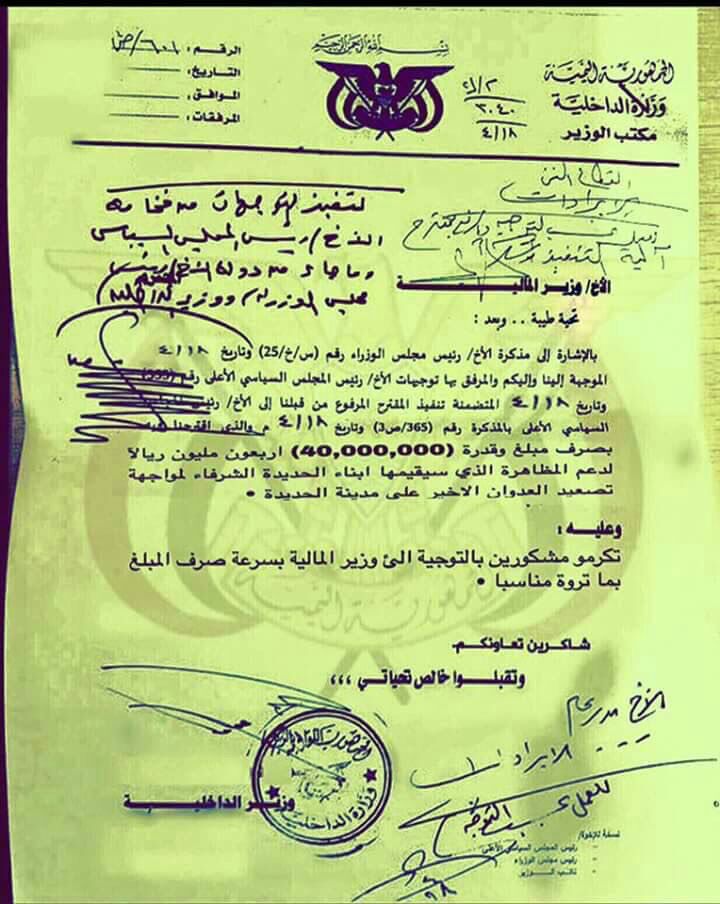 بسم الله الرحمن الرحيم
الجمهورية اليمنية
وزارة الداخلية
مكتب الوزير
الرقم :
التاريخ :
الموافق :
المرفقات :
٣٠٤٠
٤/١٨
لتنفيذ التوجيهات من فخامة
الأخ/ رئيس المجلس السياسي
وما جاء من دولة الأخ/ رئيس
مجلس الوزراء ووزير الداخلية
الأخ/ وزير المالية
تحية طيبة .. وبعد :
بالإشارة إلى مذكرة الأخ/ رئيس مجلس الوزراء رقم (س/خ/25) وتاريخ ٤/١٨
الموجهة إلينا وإليكم والمرفق بها توجيهات الأخ/ رئيس المجلس السياسي الأعلى رقم
وتاريخ ٤/١٨ المتضمنة تنفيذ المقترح المرفوع من قبلنا إلى الأخ/ رئيس
السياسي الأعلى بالمذكرة رقم (365/ص3) وتاريخ ٤/١٨ م والذي اقترحنا فيه
بصرف مبلغ وقدرة (40,000,000) اربعون مليون ريالا
لدعم المظاهرة الذي سيقيمها ابناء الحديدة الشرفاء لمواجهة
تصعيد العدوان الاخير على مدينة الحديدة •
وعليه :
تكرمو مشكورين بالتوجية الئ وزير المالية بسرعة صرف المبلغ
بما تروة مناسبا •
شاكرين تعاونكم.
وتقبلوا خالص تحياتي ،،،
وزير الداخلية
وزارة الداخلية
الأخ مدير عام
الإيرادات
للعمل بحسب التوجيه
نسخة للإخوة/
- رئيس المجلس السياسي الأعلى
- رئيس مجلس الوزراء
- نائب الوزير